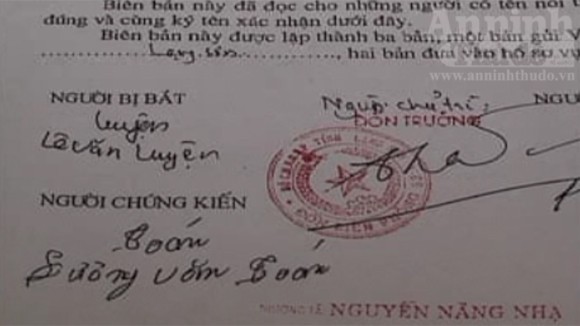 Biên bản này đã đọc cho những người có tên nói t
đúng và cùng ký tên xác nhận dưới đây.
Biên bản này được lập thành ba bản, một bản gửi V
Lạng Sơn, hai bản đưa vào hồ sơ vụ
An ninh
Thủ đô
www.anninhthudo.vn
NGƯỜI BỊ BẮT
Người chủ trì:
NGƯ
ĐỒN TRƯỞNG
Luyện
Lê Văn Luyện
NGƯỜI CHỨNG KIẾN
Toán
Văn Toán
THƯỢNG TÁ: NGUYỄN NĂNG NHẠ